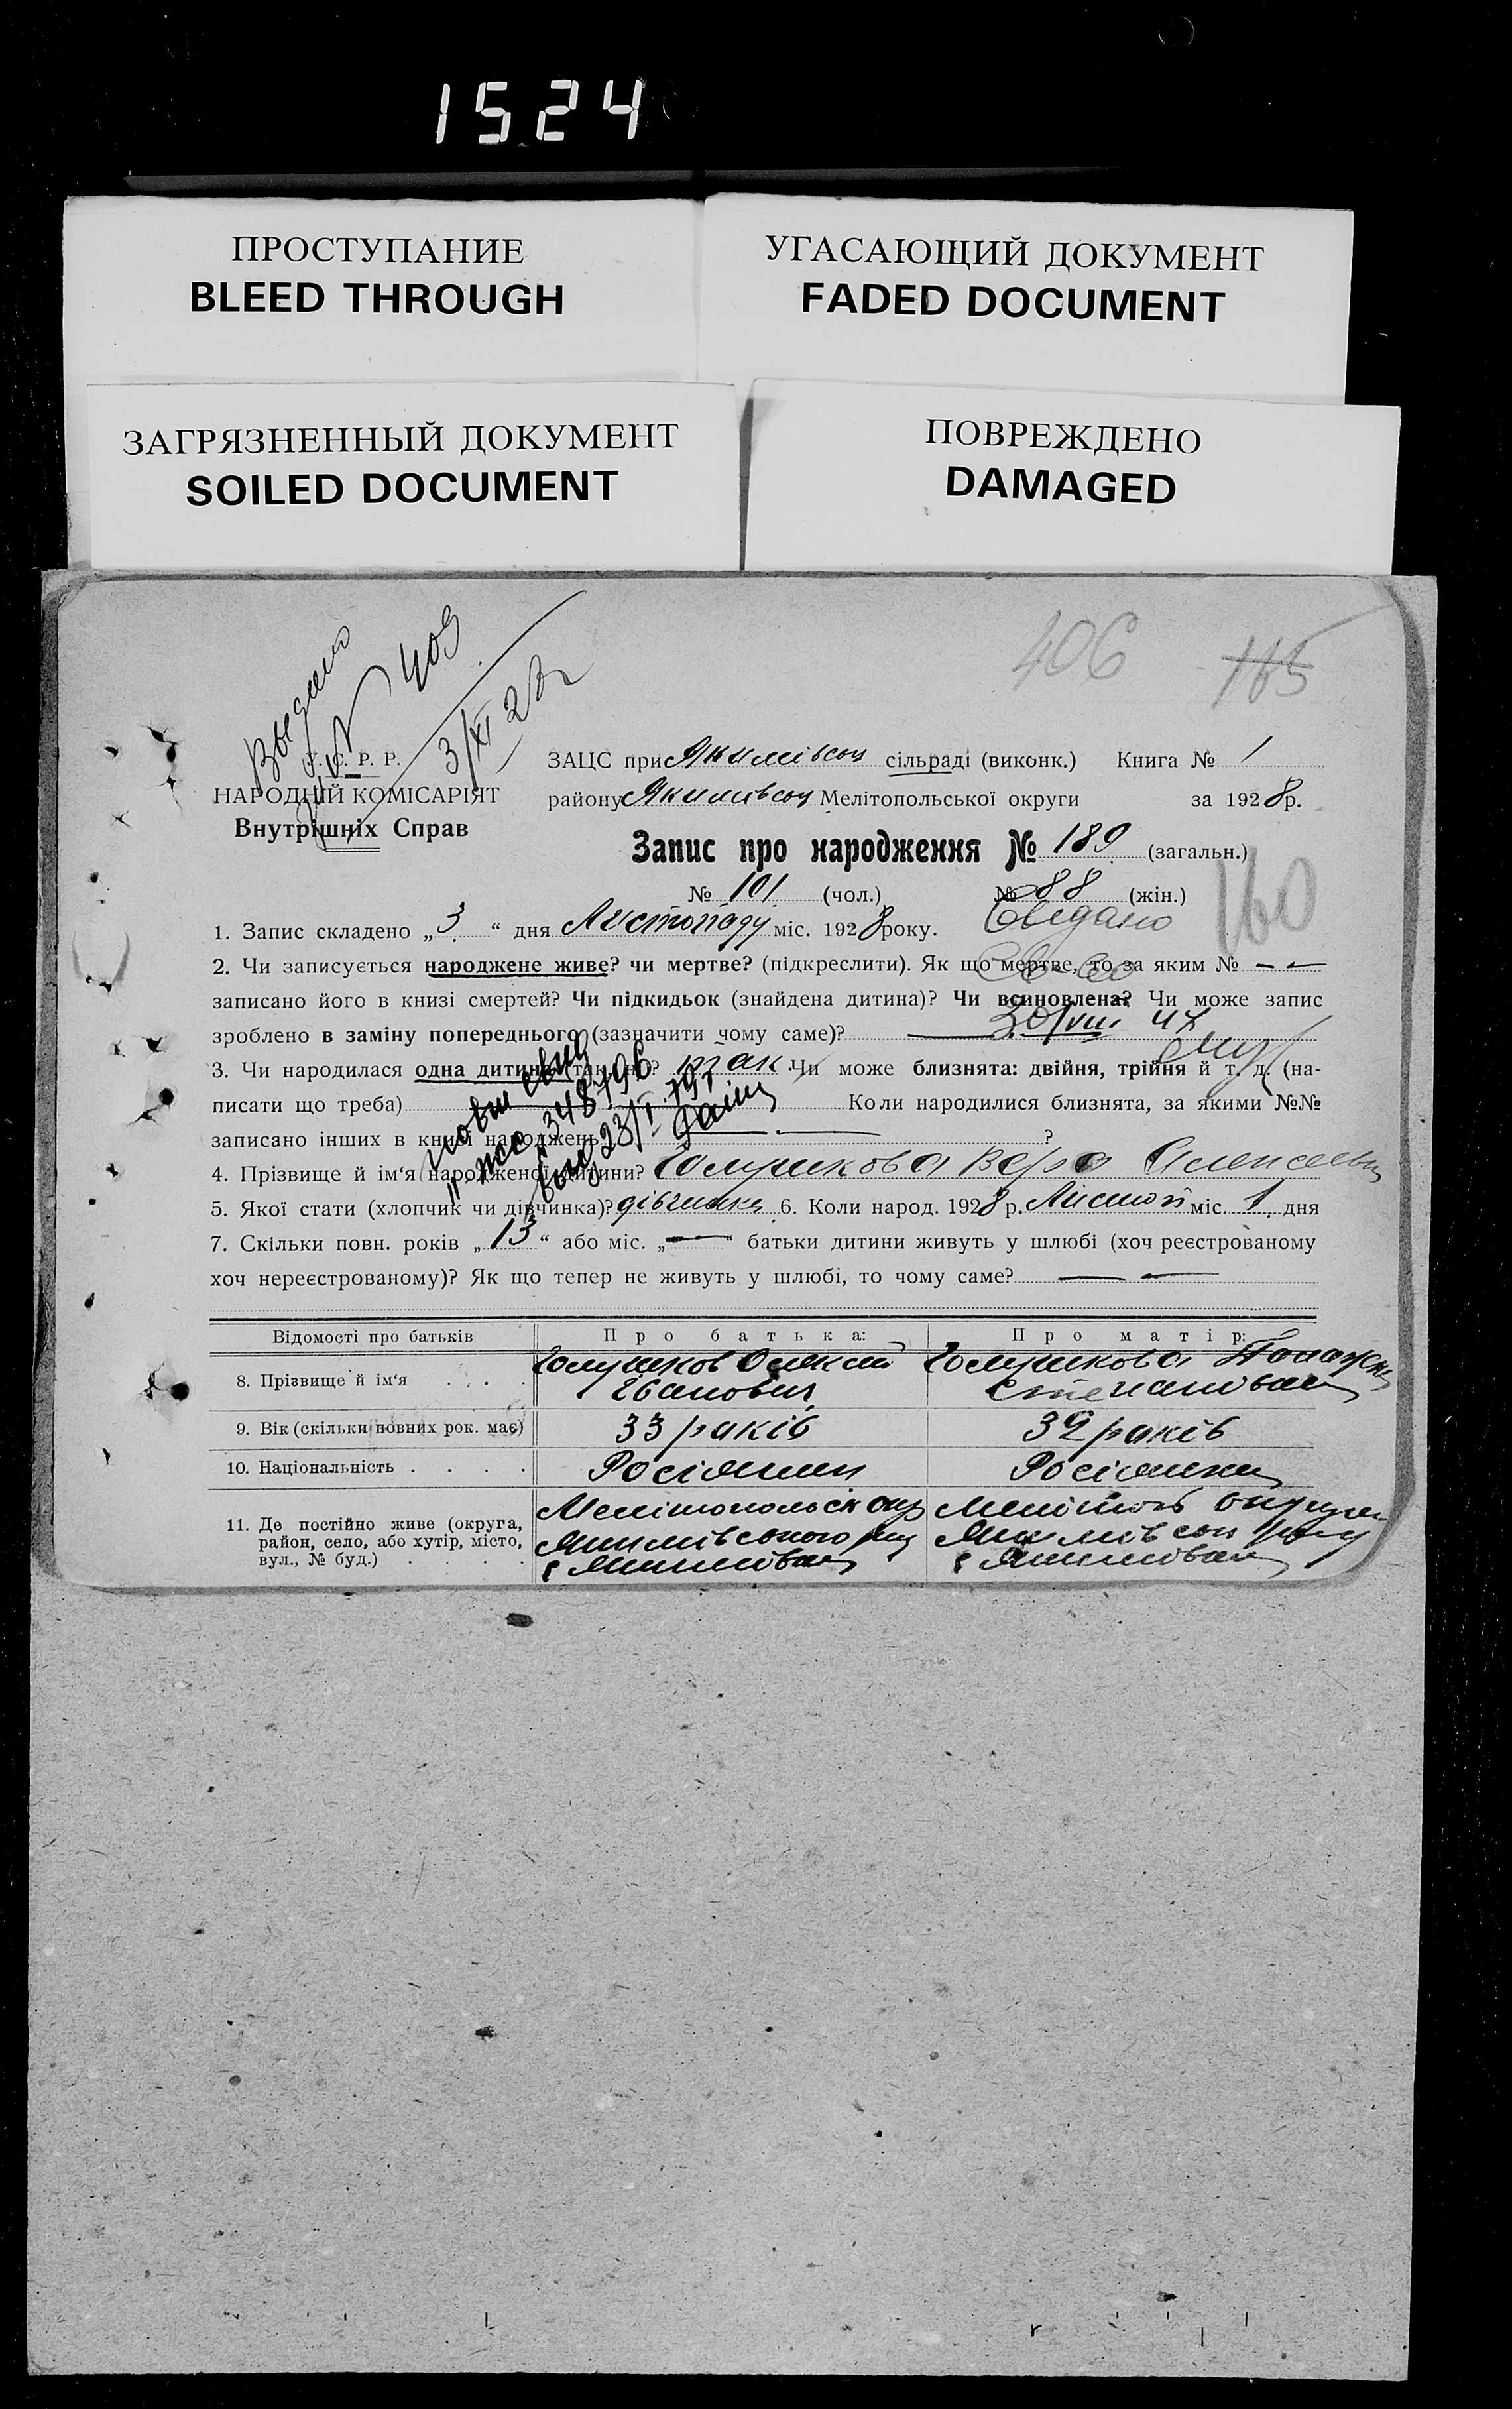 1524
ПРОСТУПАНИЕ
BLEED THROUGH
УГАСАЮЩИЙ ДОКУМЕНТ
FADED DOCUMENT
ЗАГРЯЗНЕННЫЙ ДОКУМЕНТ
SOILED DOCUMENT
ПОВРЕЖДЕНО
DAMAGED
406 165
Выдано
№ 409
3/XI 28 г
У. С. Р. Р.
НАРОДНІЙ КОМІСАРІЯТ
Внутрішніх Справ
ЗАЦС при Якимівськ сільраді (виконк.) Книга № 1
району Якимівськ Мелітопольської округи за 1928 р.
Запис про народження № 189 (загальн.)
№ 101 (чол.) № 88 (жін.)
160
1. Запис складено „3“ дня Листопаду міс. 1928 року.
2. Чи записується народжене живе? чи мертве? (підкреслити). Як що мертве, то за яким № — —
записано його в книзі смертей? Чи підкидьок (знайдена дитина)? Чи всиновлена? Чи може запис
зроблено в заміну попереднього (зазначити чому саме)? —
30/VIII 47
3. Чи народилася одна дитина (так, ні)? так Чи може близнята: двійня, трійня й т. д. (на-
писати що треба) Коли народилися близнята, за якими №№
записано інших в книзі народжень — — ?
348796
23/I
4. Прізвище й ім‘я народженої дитини? Вера Алексеевн
5. Якої стати (хлопчик чи дівчинка)? дівчинка 6. Коли народ. 1928 р. Листоп міс. 1 дня
7. Скільки повн. років „13“ або міс. „—“ батьки дитини живуть у шлюбі (хоч реєстрованому
хоч нереєстрованому)? Як що тепер не живуть у шлюбі, то чому саме? — —
Відомості про батьків Про батька: Про матір:
8. Прізвище й ім‘я . . . Олексій
Іванович Степановна
9. Вік (скільки повних рок. має) 33 років 32 років
10. Національність . . . . Росіянин Росіянка
11. Де постійно живе (округа,
район, село, або хутір, місто,
вул., № буд.) . . . .
Мелітопольськ окр
Якимівського рну
с Якимовка
Меліտոп округи
Якимівськ рну
с Якимовка